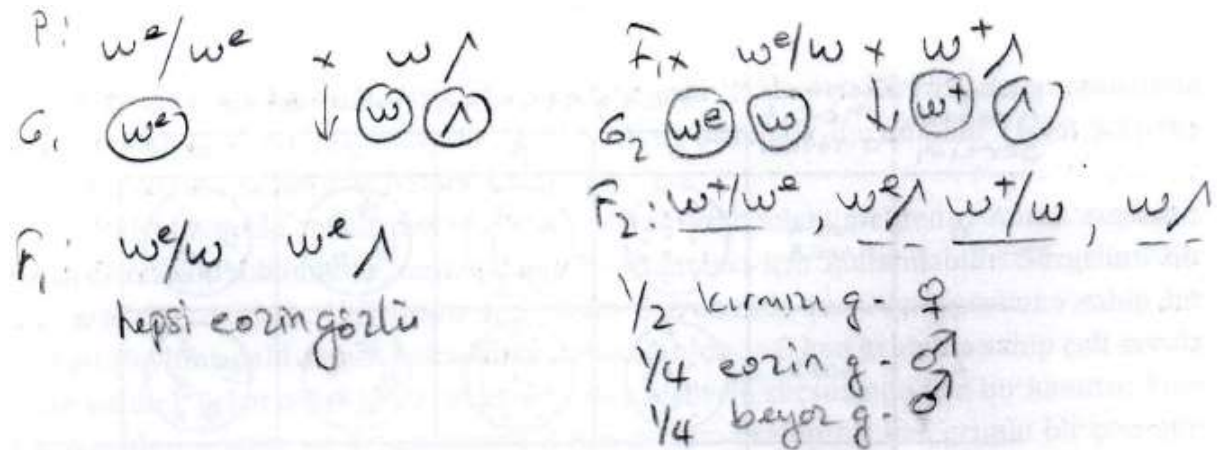 P: wᵉ/wᵉ x w ⋀
G₁ wᵉ ↓ w ⋀
F₁: wᵉ/w wᵉ ⋀
hepsi eozin gözlü
F₁x wᵉ/w x w⁺ ⋀
G₂ wᵉ w ↓ w⁺ ⋀
F₂: w⁺/wᵉ, wᵉ ⋀ w⁺/w, w ⋀
1/2 kırmızı g - ♀
1/4 eozin g - ♂
1/4 beyaz g - ♂